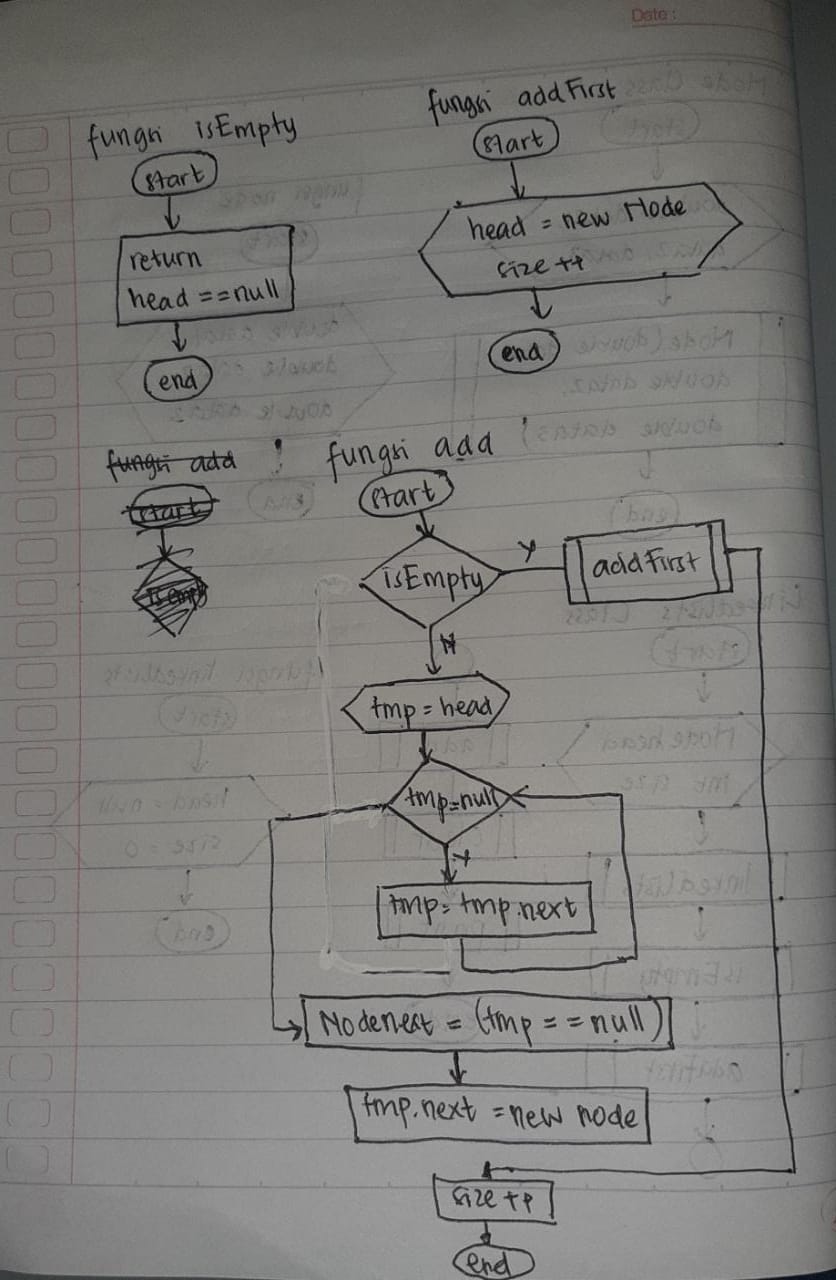 Date:
fungsi isEmpty
start
return
head == null
end
fungsi addFirst
start
head = new Node
size ++
end
fungsi add
start
fungsi add
start
isEmpty
Y
addFirst
N
tmp = head
tmp=null
Y
tmp = tmp.next
Nodenext = (tmp == null)
tmp.next = new node
size ++
end